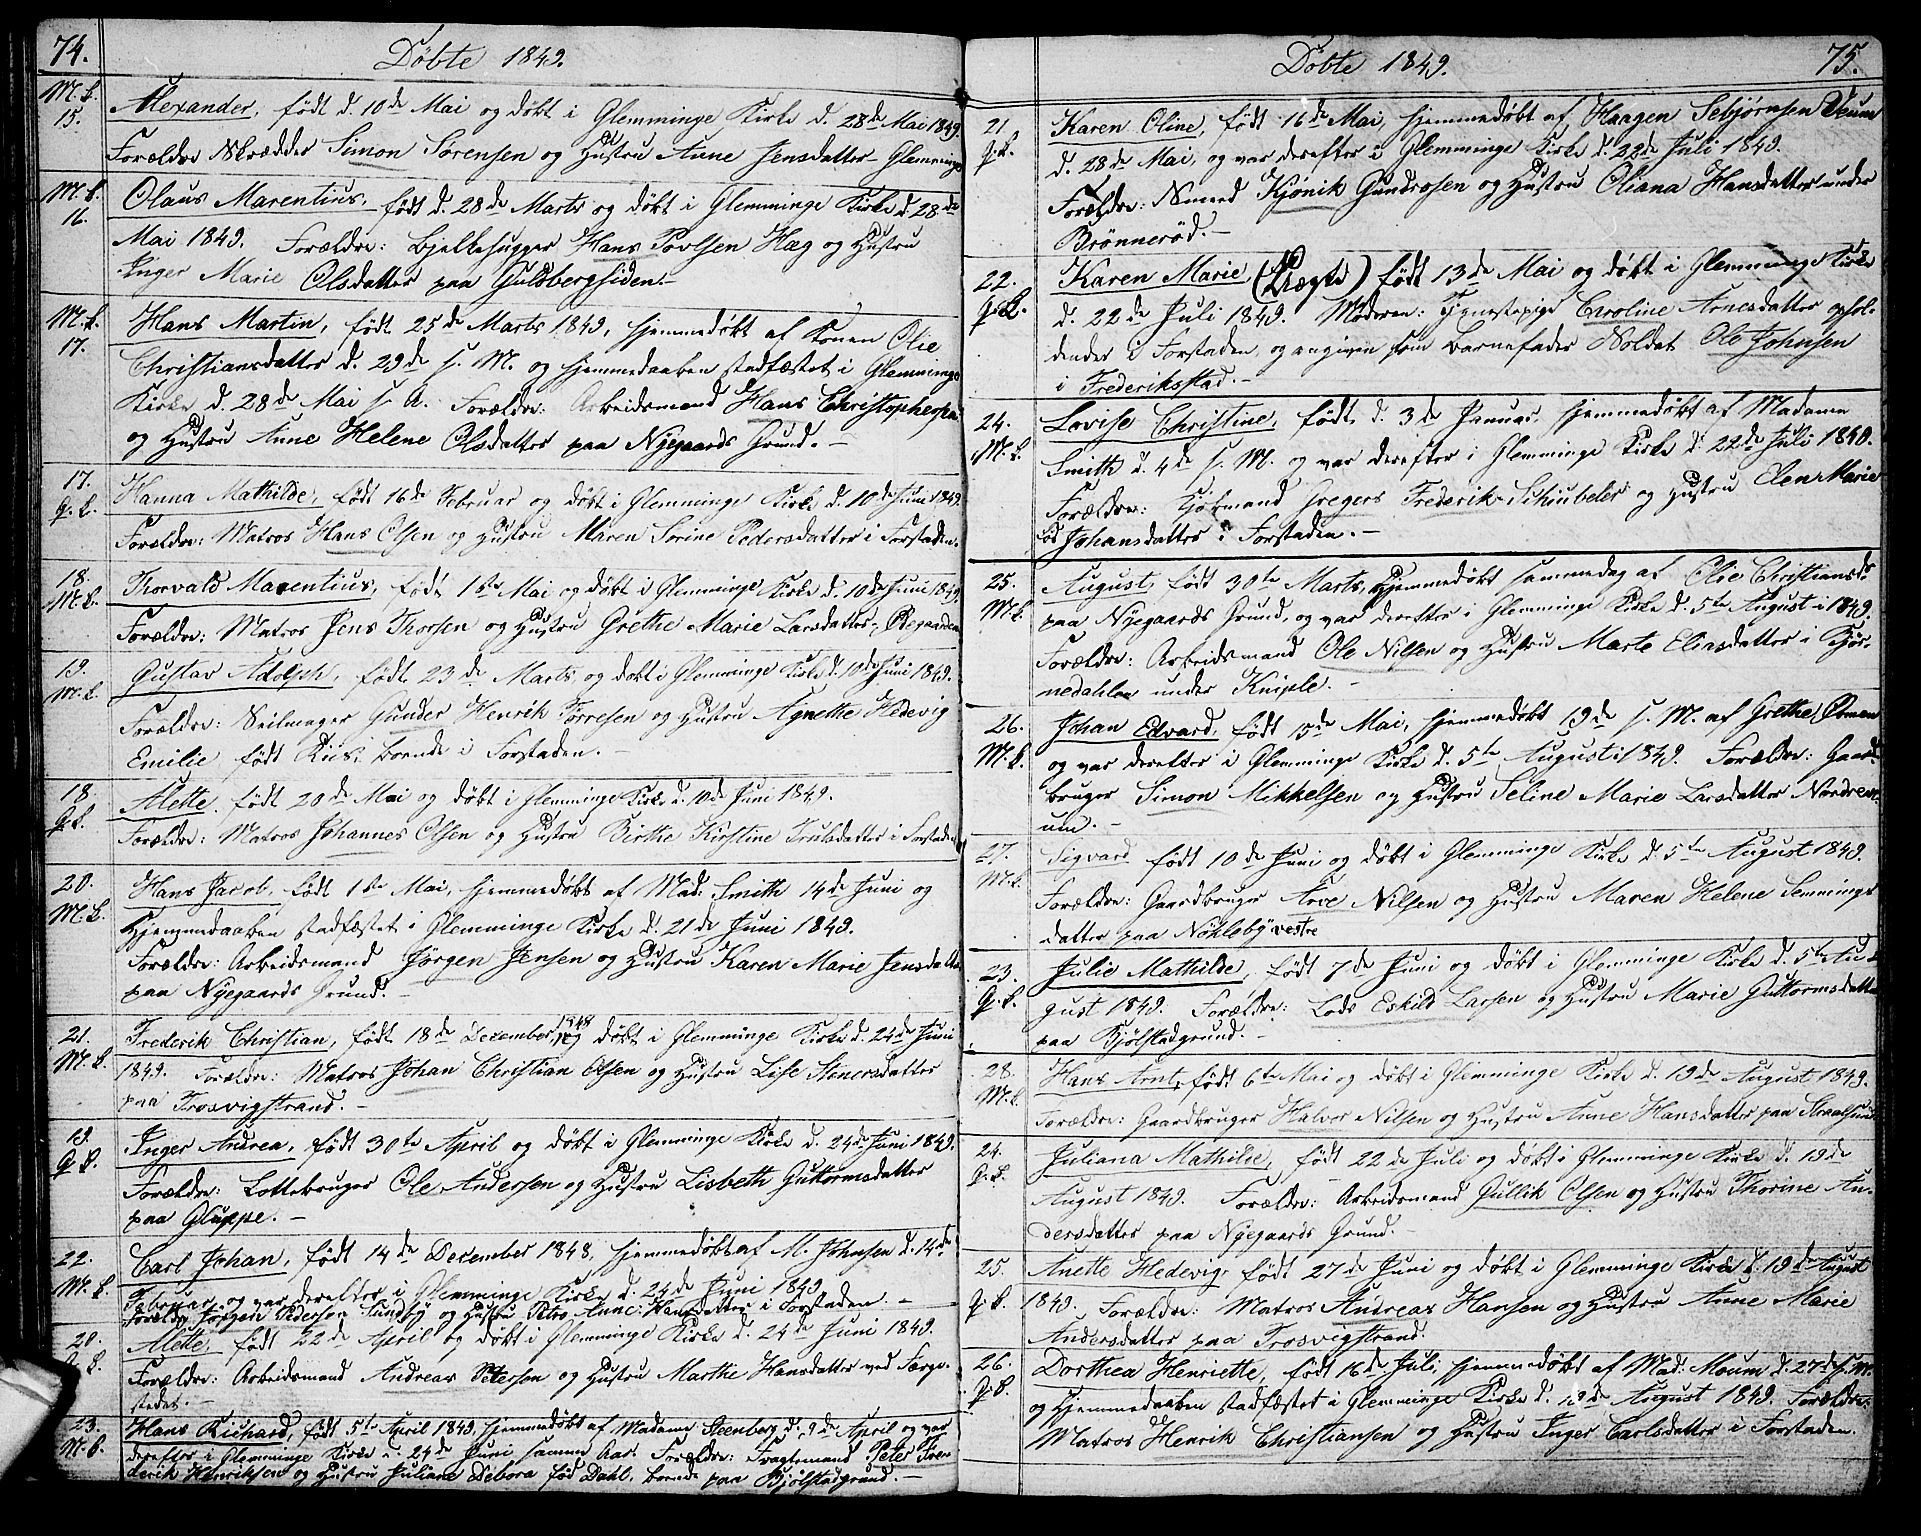 74.
Døbte 1849.
M. k. 15.
Alexander, født d. 10de Mai og døbt i Glemminge Kirke d. 28de Mai 1849.
Forældre Skrædder Simon Sørensen og Hustru Anne Jensdatter Glemminge
M. k. 16.
Olaus Marentius, født d. 28de Marts og døbt i Glemminge Kirke d. 28de
Mai 1849. Forældre: Bjelkehugger Hans Povlsen Hag og Hustru
Inger Marie Olsdatter paa Guldbergsiden.-
M. k. 17.
Hans Martin, født 25de Marts 1849, hjemmedøbt af Konen Olie
Christiansdatter d. 29de s. M. og hjemmedaaben stadfæstet i Glemminge
Kirke d. 28de Mai s. A. Forældre: Arbeidsmand Hans Christophersen
og Hustru Anne Helene Olsdatter paa Nygaards Grund.-
17. P. k.
Hanna Mathilde, født 16de Februar og døbt i Glemminge Kirke d. 10de Juni 1849.
Forældre: Matros Hans Olsen og Hustru Maren Sorine Pedersdatter i Forstaden.
18. M. k.
Thorvald Marentius, født 1ste Mai og døbt i Glemminge Kirke d. 10de Juni 1849.
Forældre: Matros Jens Thorsen og Hustru Grethe Marie Larsdatter,
19. M. k.
Gustav Adolph, født 23de Marts og døbt i Glemminge Kirke d. 10de Juni 1849.
Forældre: Seilmager Gunder Henrik Torresen og Hustru Agnethe Hedevig
Emilie født Riis, boende i Forstaden.-
18. P. k.
Alette, født 20de Mai og døbt i Glemminge Kirke d. 10de Juni 1849.
Forældre: Matros Johannes Olsen og Hustru Birthe Kirstine Trulsdatter i Forstaden
20. M. k.
Hans Jacob, født 1ste Mai, hjemmedøbt af Mad. Smith 14de Juni og
Hjemmedaaben stadfæstet i Glemminge Kirke d. 21de Juni 1849.
Forældre: Arbeidsmand Jørgen Jensen og Hustru Karen Marie Jensdatter
paa Nyegaards Grund.-
21. M. k.
Frederik Christian, født 18de December 1848 og døbt i Glemminge Kirke d. 24de Juni
1849. Forældre: Matros Johan Christian Olsen og Hustru Lise Stenersdatter
paa Trosvigstrand.-
19. P. k.
Inger Andrea, født 30te April og døbt i Glemminge Kirke d. 24de Juni 1849.
Forældre: Lottebruger Ole Andersen og Hustru Lisbeth Guttormsdatter
paa Gluppe.-
22. M. k.
Carl Johan, født 14de December 1848, hjemmedøbt af M. Johnsen d. 14de
Februar, og var derefter i Glemminge Kirke d. 24de Juni 1849.
Forældre Jørgen Pedersen Sundby og Hustru Petro Anne Hansdatter i Forstaden -
20. P. k.
Alette, født 22de April og døbt i Glemminge Kirke d. 24de Juni 1849.
Forældre: Arbeidsmand Andreas Petersen og Hustru Marthe Hansdatter ved Færge-
stedet.-
23. M. k.
Hans Richard, født 5te April 1849, hjemmedøbt af Madame Steenberg d. 9de April og var
derefter i Glemminge Kirke d. 24de Juni samme Aar. Forældre: Fragtemand Peter Fre-
derik Henriksen og Hustru Juliane Debora fød Dahl, boende paa Bjølstadgrund.-
Døbte 1849.
75.
21. P. k.
Karen Oline, født 16de Mai, hjemmedøbt af Haagen Sebjørnsen Veum
d. 28de Mai, og var derefter i Glemminge Kirke d. 22de Juli 1849.
Forældre: Smed Kjønik Gundrosen og Hustru Oliana Hansdatter under
Brønnerød.-
22. P. k.
Karen Marie (Uægte) født 13de Mai og døbt i Glemminge Kirke
d. 22de Juli 1849. Moderen: Tjenestepige Caroline Arnesdatter ophol-
dende i Forstaden, og angiven som Barnefader Soldat Ole Johnsen
i Frederiksstad.-
24. M. k.
Lovise Christine, født d. 3de Januar, hjemmedøbt af Madame
Smith d. 4de s. M. og var derefter i Glemminge Kirke d. 22de Juli 1849.
Forældre: Kjøbmand Gregers Frederik Schiubeler og Hustru Elen Marie
fød Johansdatter i Forstaden.-
25. M. k.
August, født 30te Marts, hjemmedøbt sammedag af Olie Christiansd.
paa Nyegaards Grund, og var derefter i Glemminge Kirke d. 5te August 1849.
Forældre: Arbeidsmand Ole Nilsen og Hustru Marte Eliasdatter i Bjør-
nedahlen under Kniple.-
26. M. k.
Johan Edvard, født 15de Mai, hjemmedøbt 19de s. M. af Grethe Osmen
og var derefter i Glemminge Kirke d. 5te August 1849. Forældre: Gaard-
bruger Simon Mikkelsen og Hustru Seline Marie Larsdatter Nordreve-
um.-
27. M. k.
Sigvard, født 10de Juni og døbt i Glemminge Kirke d. 5te August 1849.
Forældre: Gaardbruger Arve Nilsen og Hustru Maren Helene Semmings-
datter paa Nøkleby vestre
23. P. k.
Julie Mathilde, født 7de Juni og døbt i Glemminge Kirke d. 5te Au-
gust 1849. Forældre: Lods Eskild Larsen og Hustru Marie Guttormsdatter
paa Bjølstadgrund.-
28. M. k.
Hans Arnt, født 6te Mai og døbt i Glemminge Kirke d. 19de August 1849.
Forældre: Gaardbruger Halvor Nilsen og Hustru Anne Hansdatter paa Straalsund
24. P. k.
Juliana Mathilde, født 22de Juli og døbt i Glemminge Kirke d. 19de
August 1849. Forældre: Arbeidsmand Gullik Olsen og Hustru Thorine An-
dersdatter paa Nyegaards Grund.-
25. P. k.
Anette Hedevig, født 27de Juni og døbt i Glemminge Kirke d. 19de August
1849. Forældre: Matros Andreas Hansen og Hustru Anne Marie
Andersdatter paa Trosvigstrand.
26. P. k.
Dorthea Henriette, født 16de Juli, hjemmedøbt af Mad. Moum d. 27de s. M.
og Hjemmedaaben stadfæstet i Glemminge Kirke d. 19de August 1849. Forældre:
Matros Henrik Christiansen og Hustru Inger Carlsdatter i Forstaden.